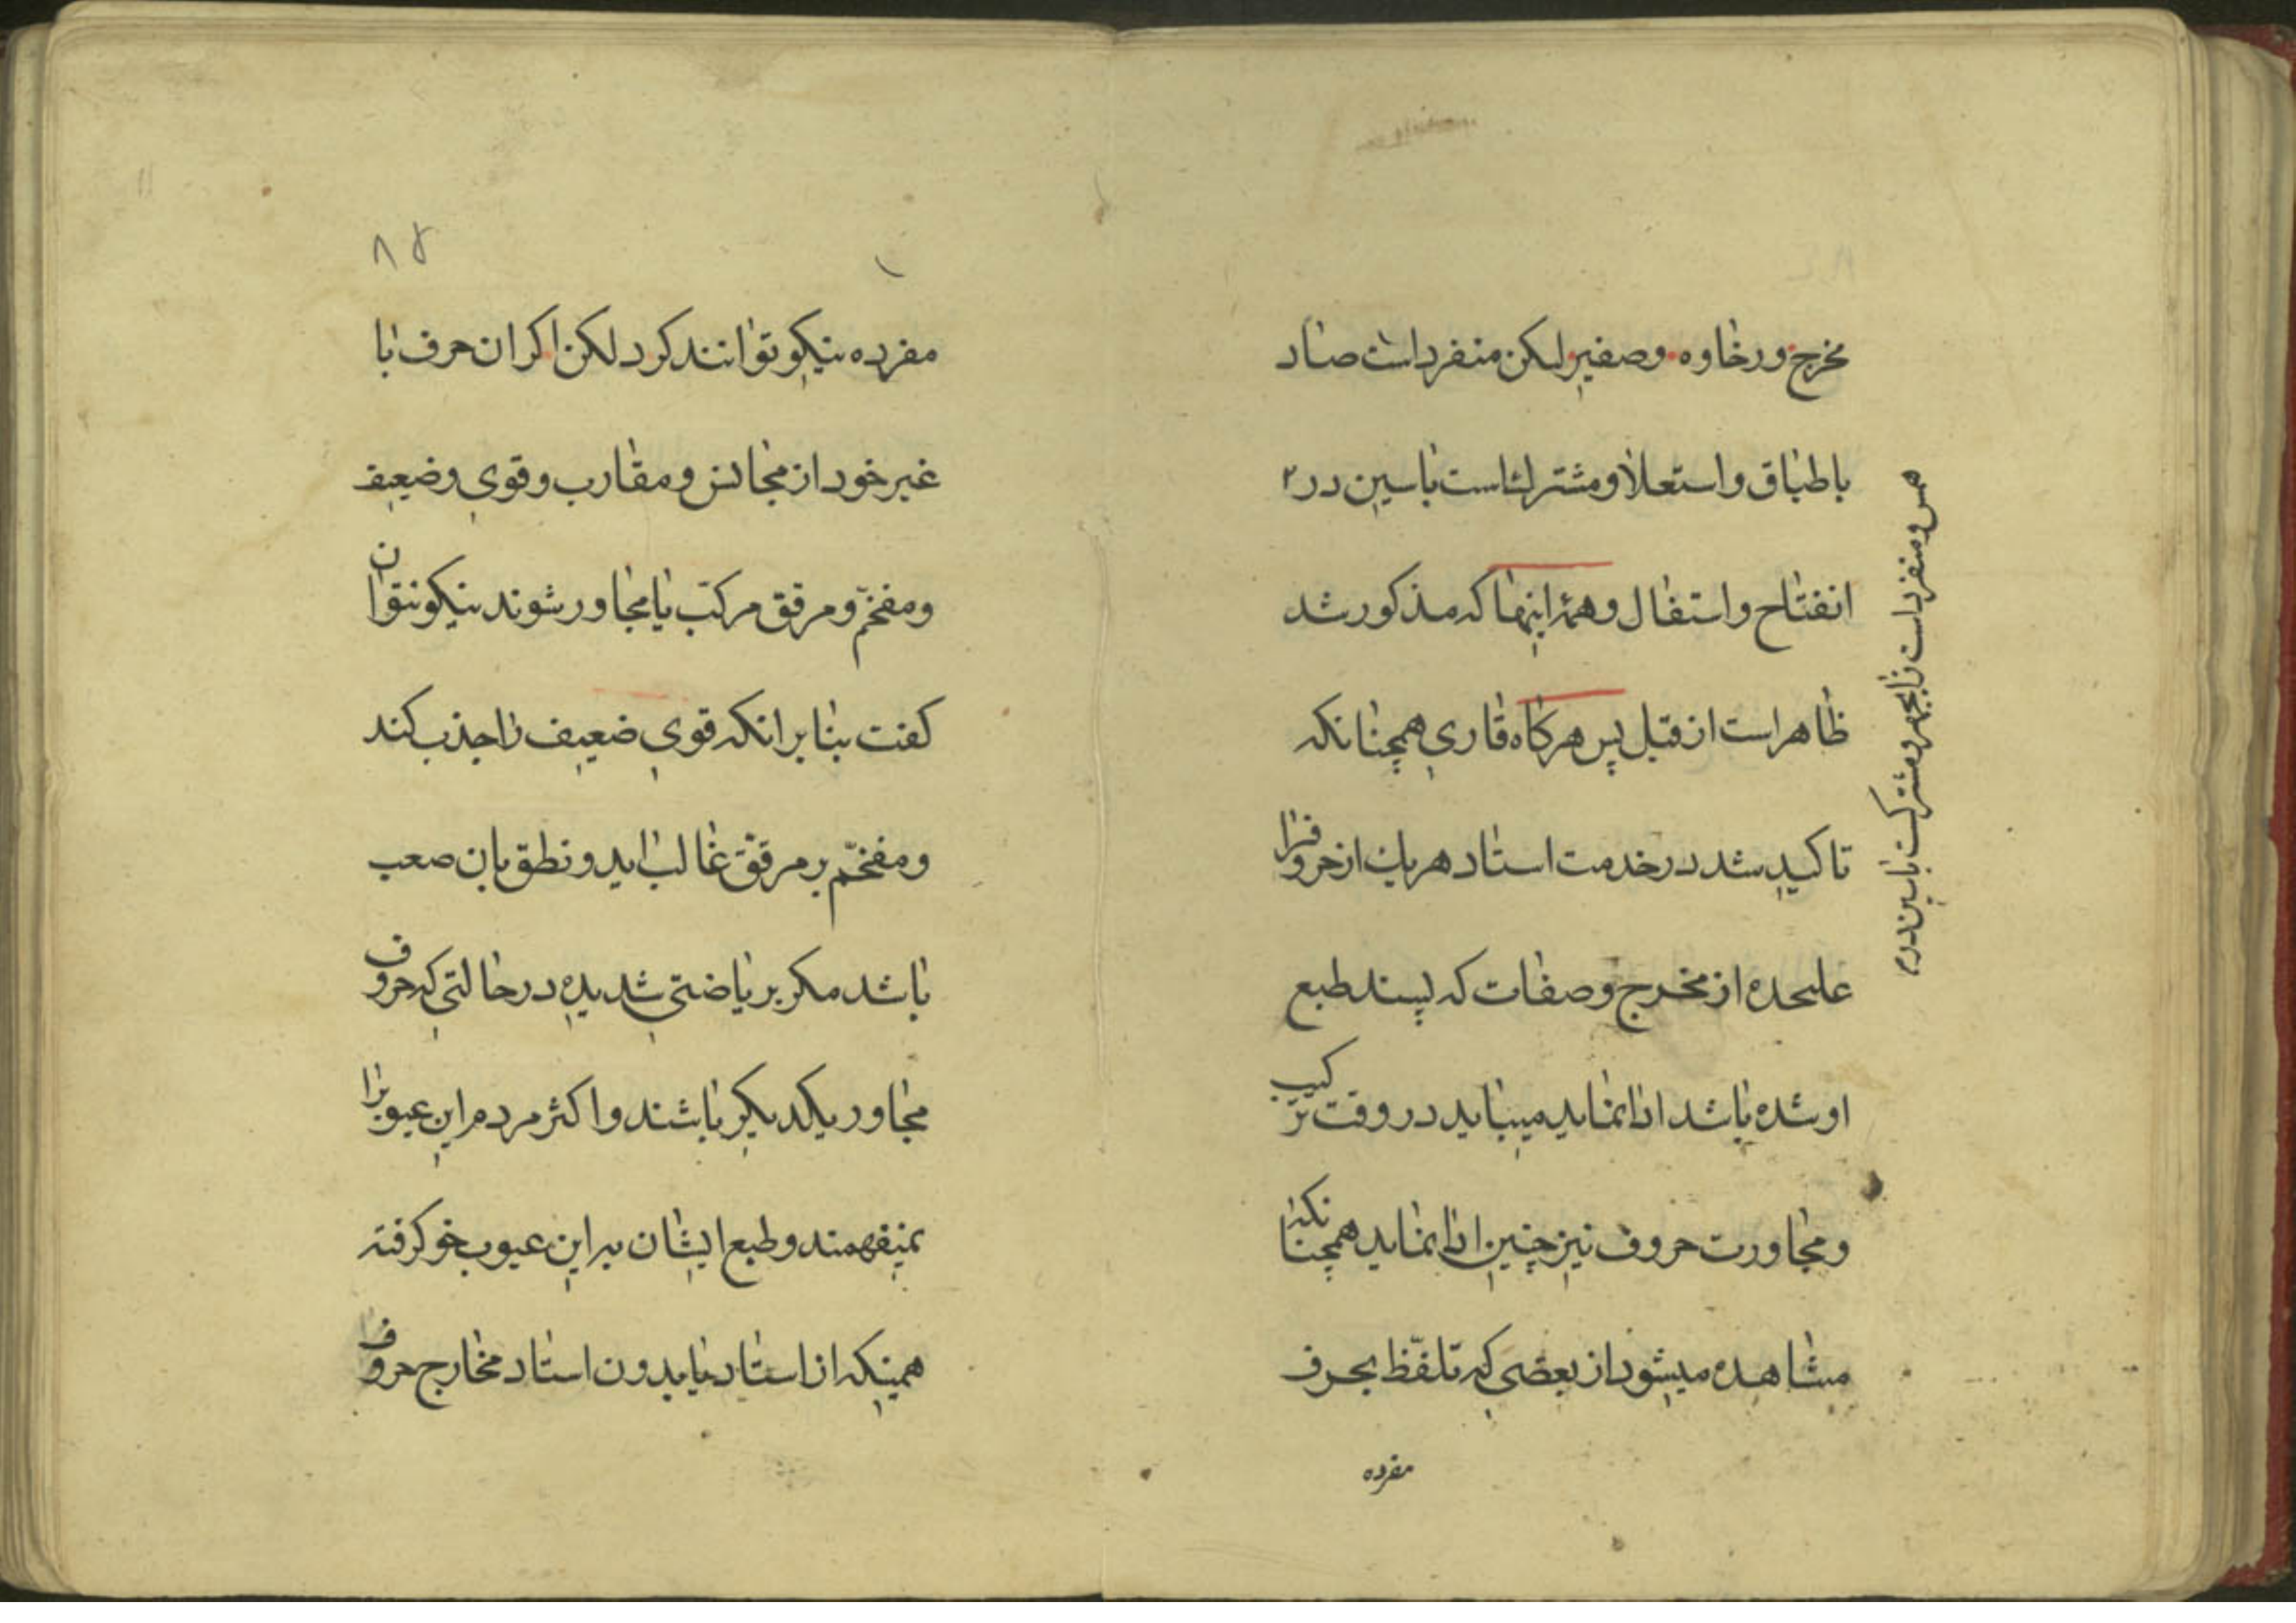 مخرج ورخاوه وصفیر لکن منفرد است صاد
باطباق واستعلا ومشترك است باسین در ۲
انفتاح واستفال وهمهٔ اینها که مذکور شد
ظاهر است از قبل پس هرکاه قاری همچنانکه
تاکید شد در خدمت استاد هریك از حروفرا
علیحده از مخرج وصفات که پسند طبع
او شده باشد ادا نماید میباید در وقت ترکیب
ومجاورت حروف نیز چنین ادا نماید همچنانکه
مشاهده میشود از بعضی که تلفّظ بحرف
مفرده
همس ومنفرد است زا بجهر ومشترکست باسین در ۲
۸۵
مفرده نیکو توانند کرد لکن اکر ان حرف با
غیر خود از مجانس ومقارب وقوی وضعیف
ومفخّم ومرقق مرکّب یا مجاور شوند نیکو نتوان
کفت بنا بر انکه قوی ضعیف را جذب کند
ومفخّم بر مرقّق غالب اید ونطق بان صعب
باشد مکر بریاضتی شدیده در حالتی که حروف
مجاور یکدیکر باشند واکثر مردم این عیوبرا
نمیفهمند وطبع ایشان بر این عیوب خو کرفته
همینکه از استاد یا بدون استاد مخارج حروف